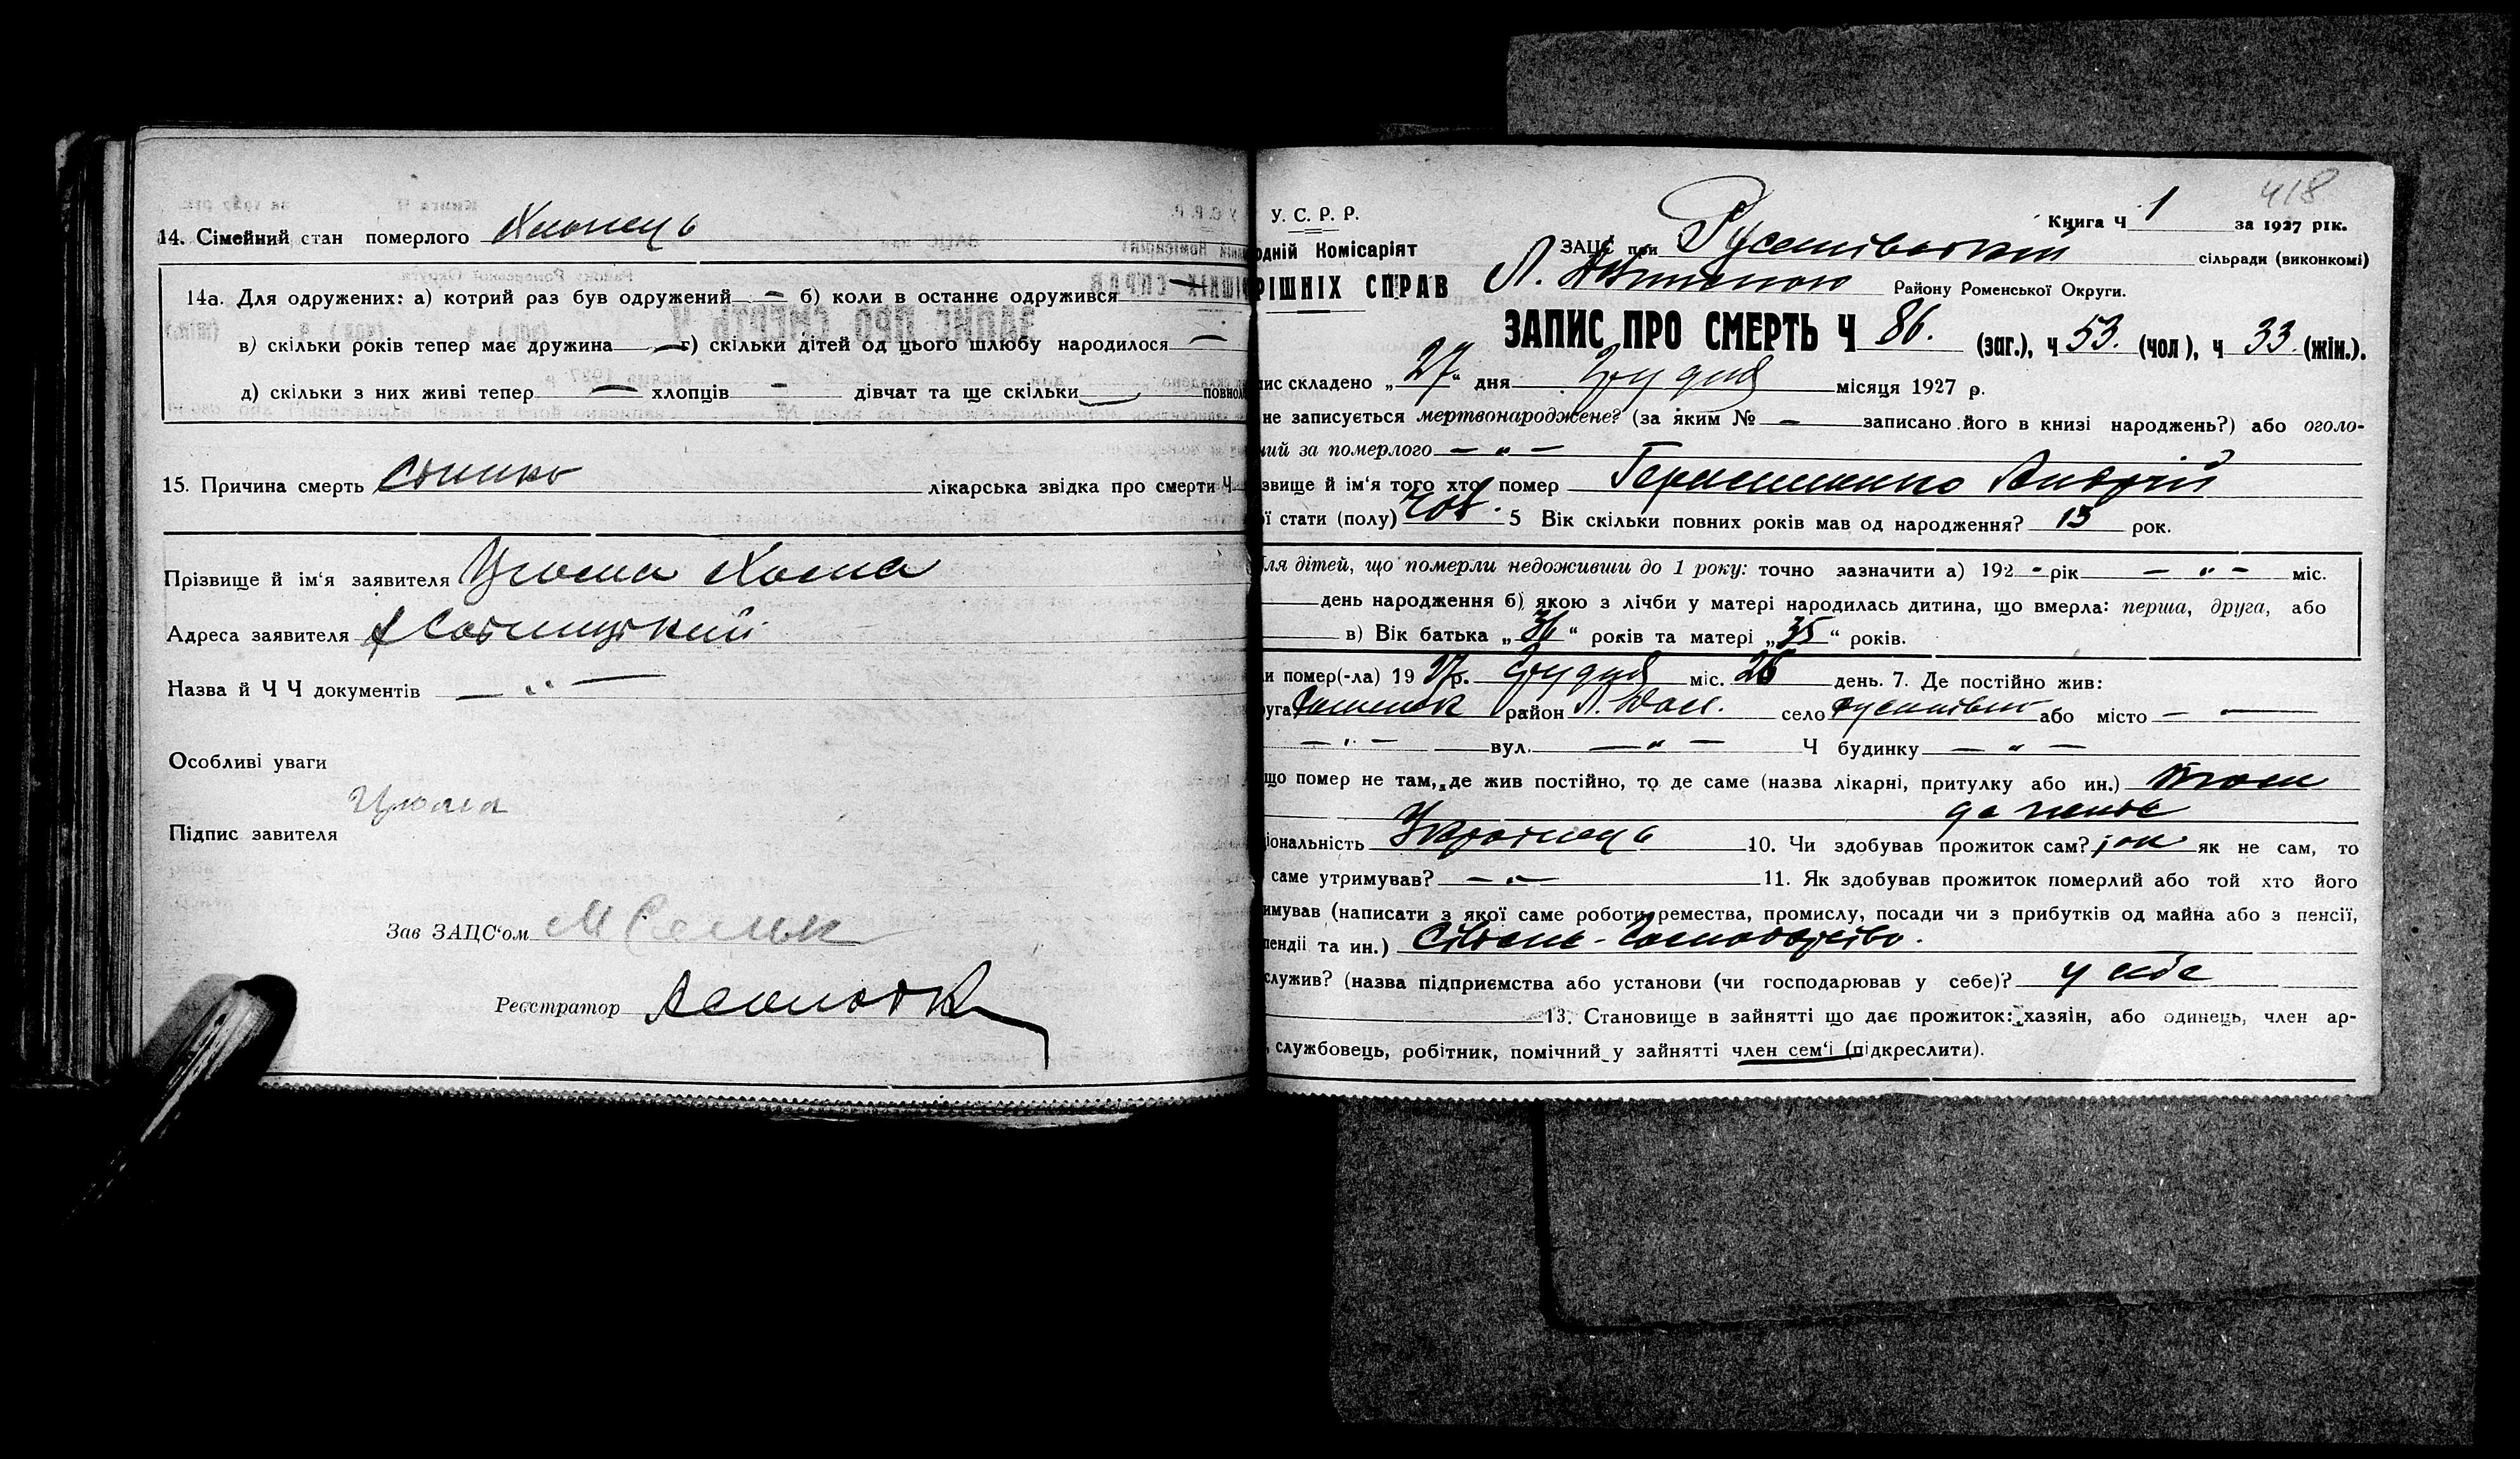 14. Сімейний стан померлого Хлопець
14а. Для одружених: а) котрий раз був одружений — б) коли в останнє одружився
в) скільки років тепер має дружина — г) скільки дітей од цього шлюбу народилося —
д) скільки з них живі тепер — хлопців — дівчат та ще скільки повнол
15. Причина смерть лікарська звідка про смерти Ч
Прізвище й ім'я заявителя Хома
Адреса заявителя
Назва й Ч Ч документів — „ —
Особливі уваги
Підпис завителя
Зав ЗАЦС'ом
Реєстратор
418
У. С. Р. Р.
Книга Ч 1 за 1927 рік.
одній Комісаріят
ЗАЦС при Русанівській сільради (виконкомі)
РІШНІХ СПРАВ
Л. Району Роменської Округи.
ЗАПИС ПРО СМЕРТЬ Ч 86. (заг.), ч 53. (чол), ч 33. (жін.).
ис складено „27“ дня Грудня місяця 1927 р.
не записується мертвонароджене? (за яким № — записано його в книзі народжень?) або оголо-
ний за померлого — „ —
звище й ім'я того хто помер Герасименко Андрій
ої стати (полу) чол. 5 Вік скільки повних років мав од народження? 13 рок.
ля дітей, що померли недоживши до 1 року: точно зазначити а) 192 - рік — „ — міс.
день народження б) якою з лічби у матері народилась дитина, що вмерла: перша, друга, або
в) Вік батька „36“ років та матері „35“ років.
и помер(-ла) 19 27р. Грудня міс. 26 день. 7. Де постійно жив:
руга район село Русанівка або місто — —
— „ — вул. — „ — Ч будинку — „ —
що помер не там, де жив постійно, то де саме (назва лікарні, притулку або ин.)
іональність Українець 10. Чи здобував прожиток сам? як не сам, то
саме утримував? — „ — 11. Як здобував прожиток померлий або той хто його
имував (написати з якої саме роботи ремества, промислу, посади чи з прибутків од майна або з пенсії,
пендії та ин.) Сільськ-Господарство.
служив? (назва підприємства або установи (чи господарював у себе)? у себе
13. Становище в зайнятті що дає прожиток: хазяін, або одинець, член ар-
, службовець, робітник, помічний у зайнятті член сем'ї (підкреслити).